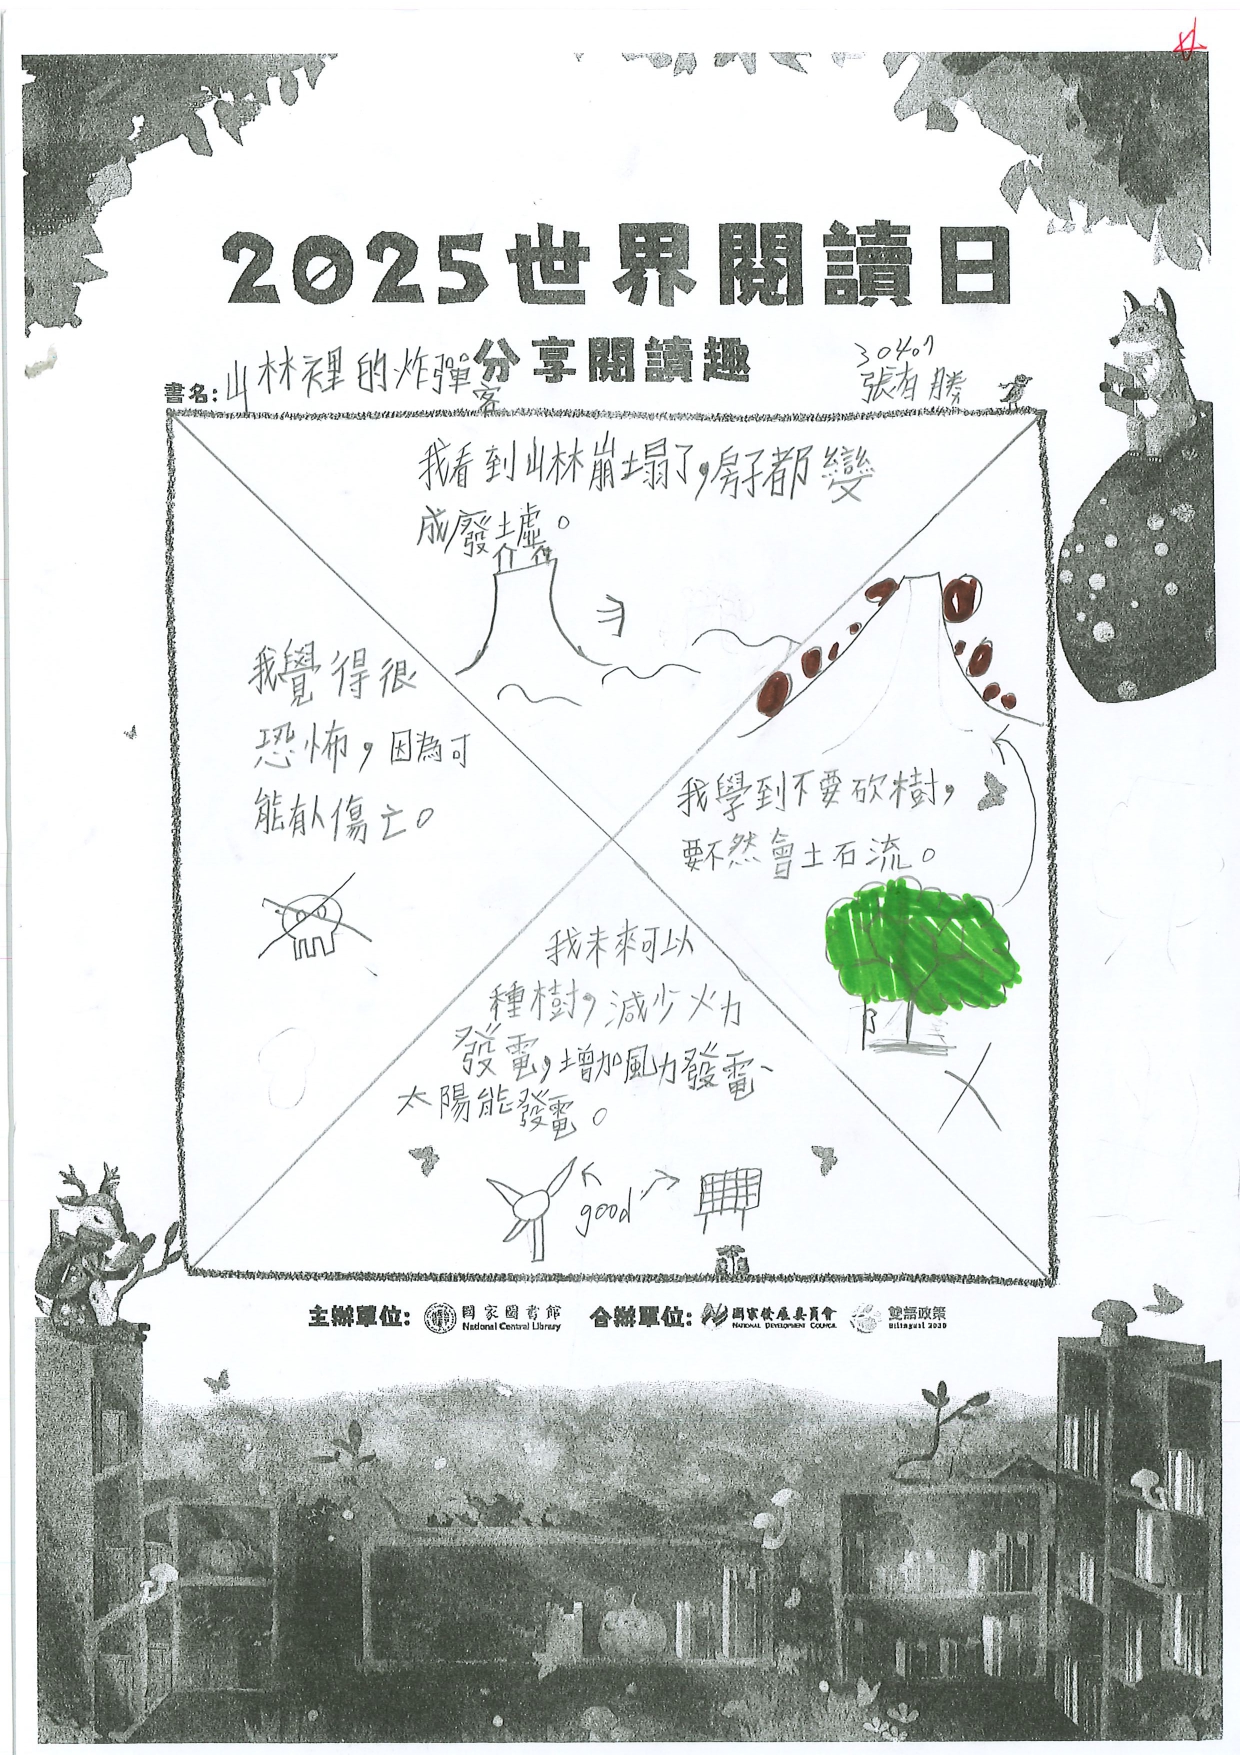 2025世界閱讀日
分享閱讀趣
書名:山林裡的炸彈客
30407
張宥勝
我看到山林崩塌了,房子都變
成廢墟。
我覺得很
恐怖,因為可
能有人傷亡。
我學到不要砍樹,
要不然會土石流。
我未來可以
種樹,減少火力
發電,增加風力發電、
太陽能發電。
good
主辦單位: 國家圖書館 National Central Library 合辦單位: 國家發展委員會 NATIONAL DEVELOPMENT COUNCIL 雙語政策 Bilingual 2030